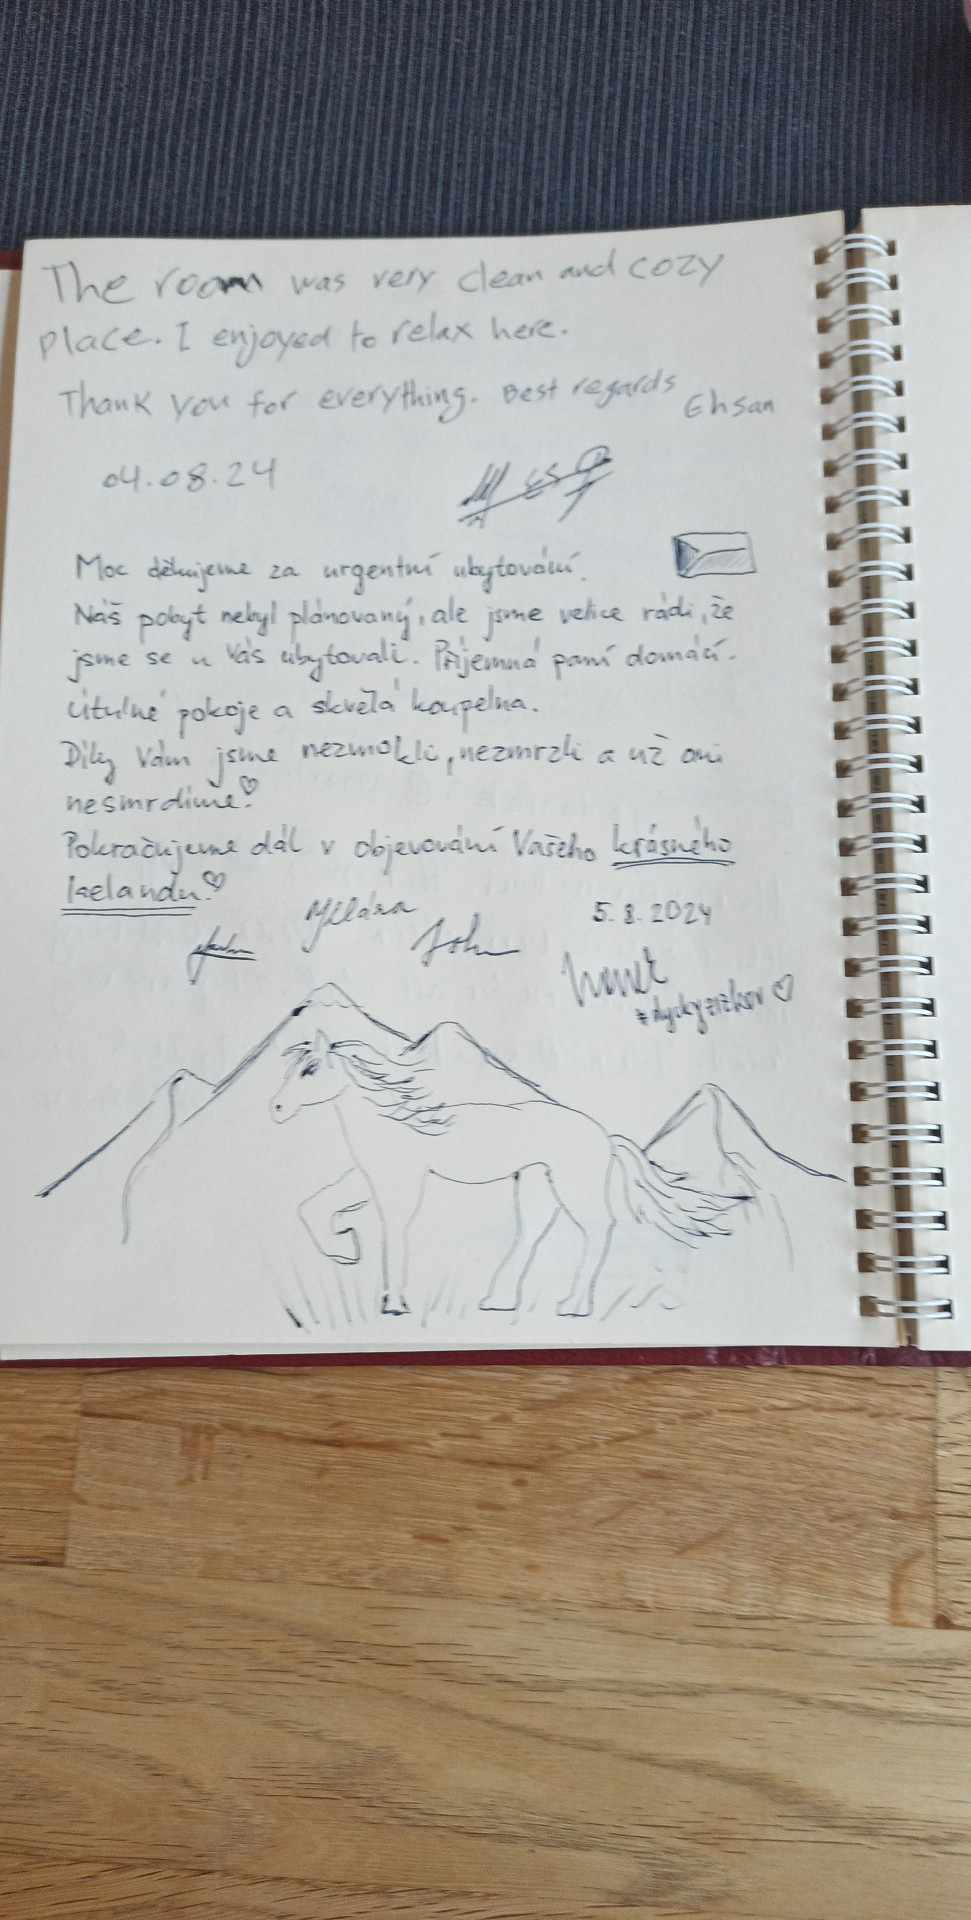 The room was very clean and cozy
place. I enjoyed to relax here.
Thank you for everything. Best regards
Ehsan
04.08.24
Moc děkujeme za urgentní ubytování.
Náš pobyt nebyl plánovaný, ale jsme velice rádi, že
jsme se u Vás ubytovali. Příjemná paní domácí.
Útulné pokoje a skvělá koupelna.
Díky Vám jsme nezmokli, nezmrzli a už ani
nesmrdíme!
Pokračujeme dál v objevování Vašeho krásného
Icelandu!
5.8.2024
John
#dyckyzizkov